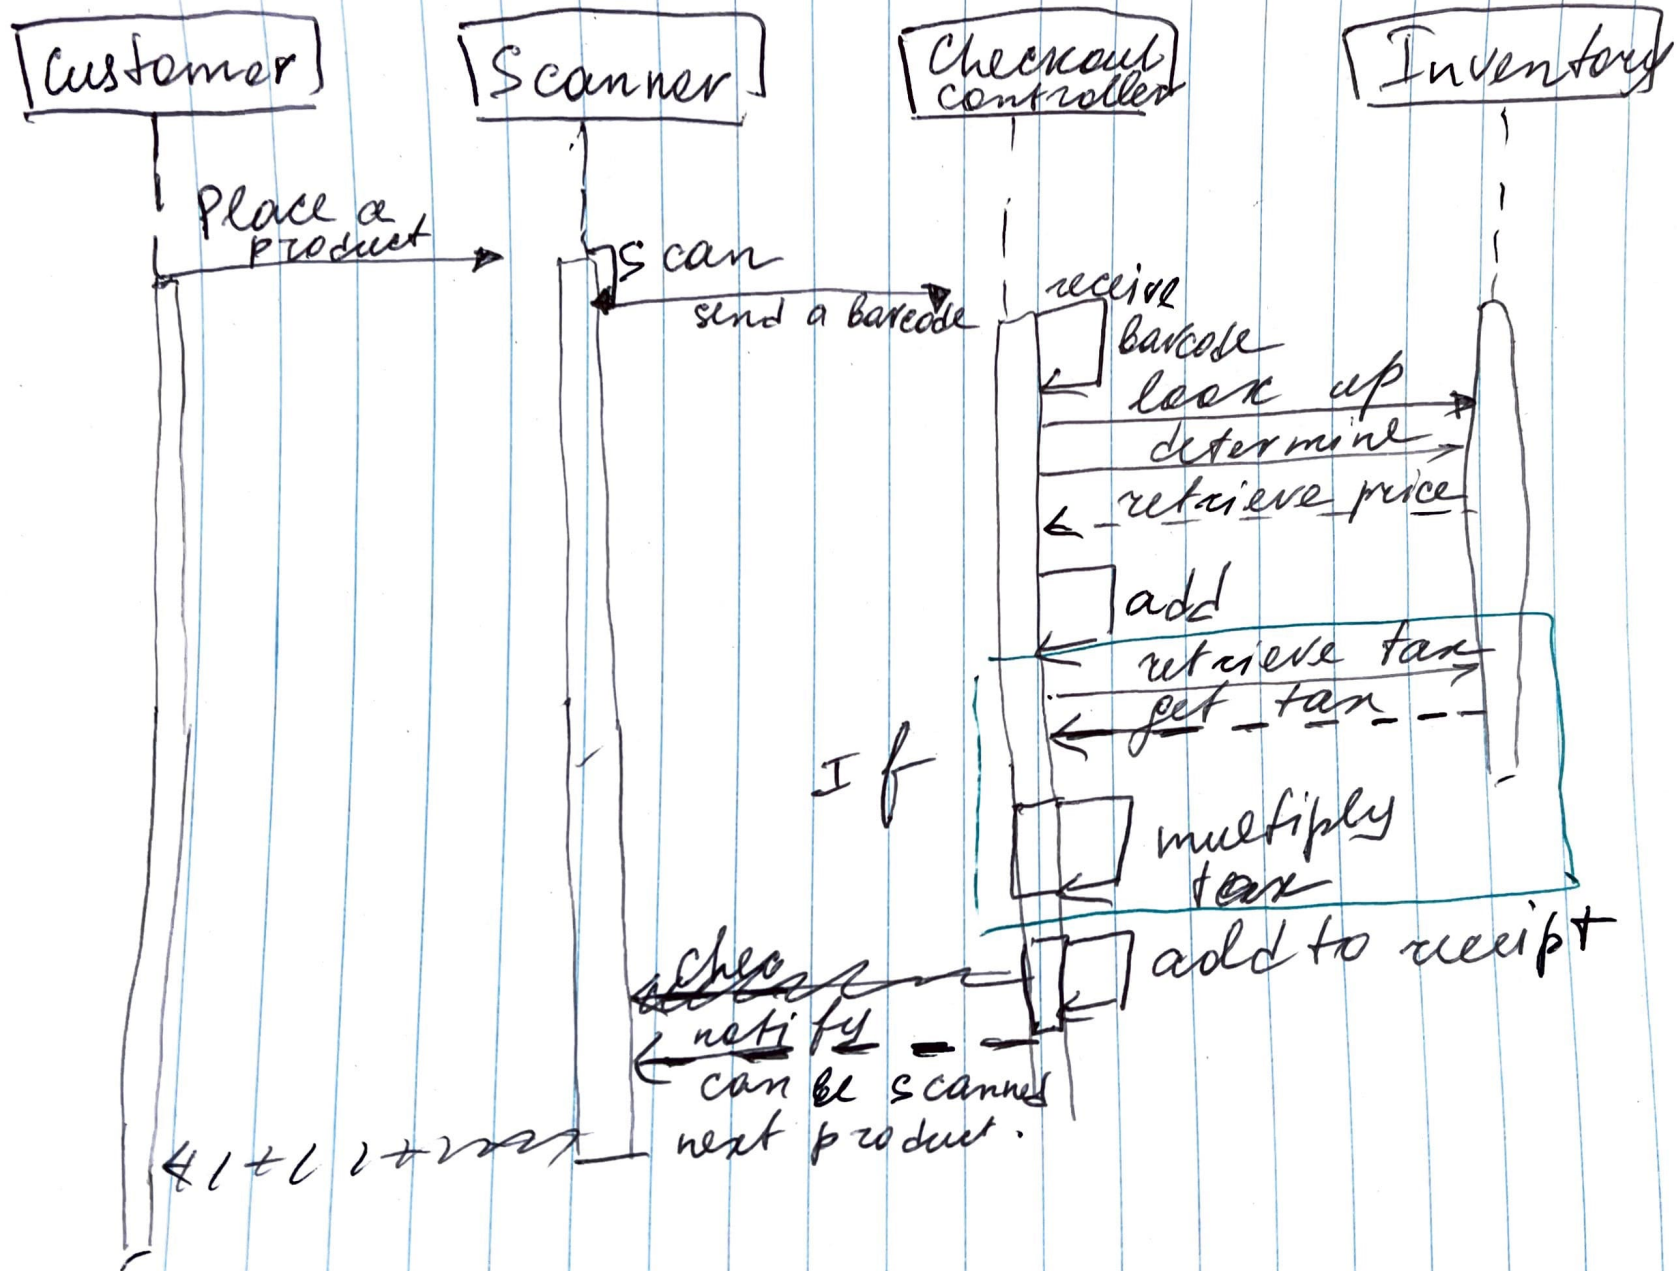 Customer
Scanner
Checkout
controller
Inventory
Place a
product
Scan
send a barcode
receive
barcode
look up
determine
retrieve price
add
retrieve tax
get tax
If
multiply
tax
add to receipt
notify
can be scanned
next product.